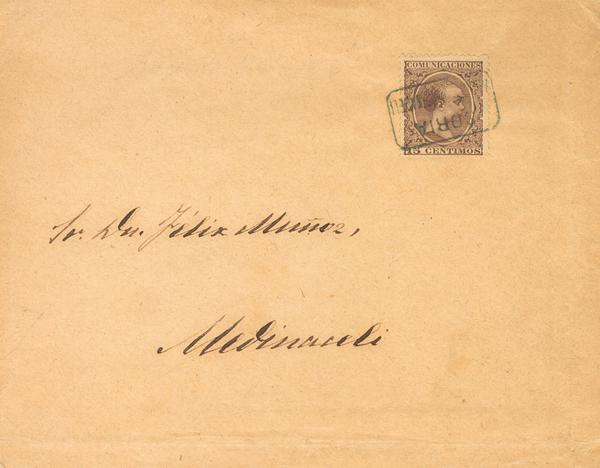 COMUNICACIONES
15 CENTIMOS
SORIA
Sr. Dn. Félix Muñoz,
Medinaceli